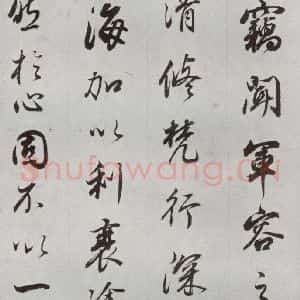 竊聞軍容之
清修梵行深
海加以剎裏塗
然於心固不以一
Shufawang.CN